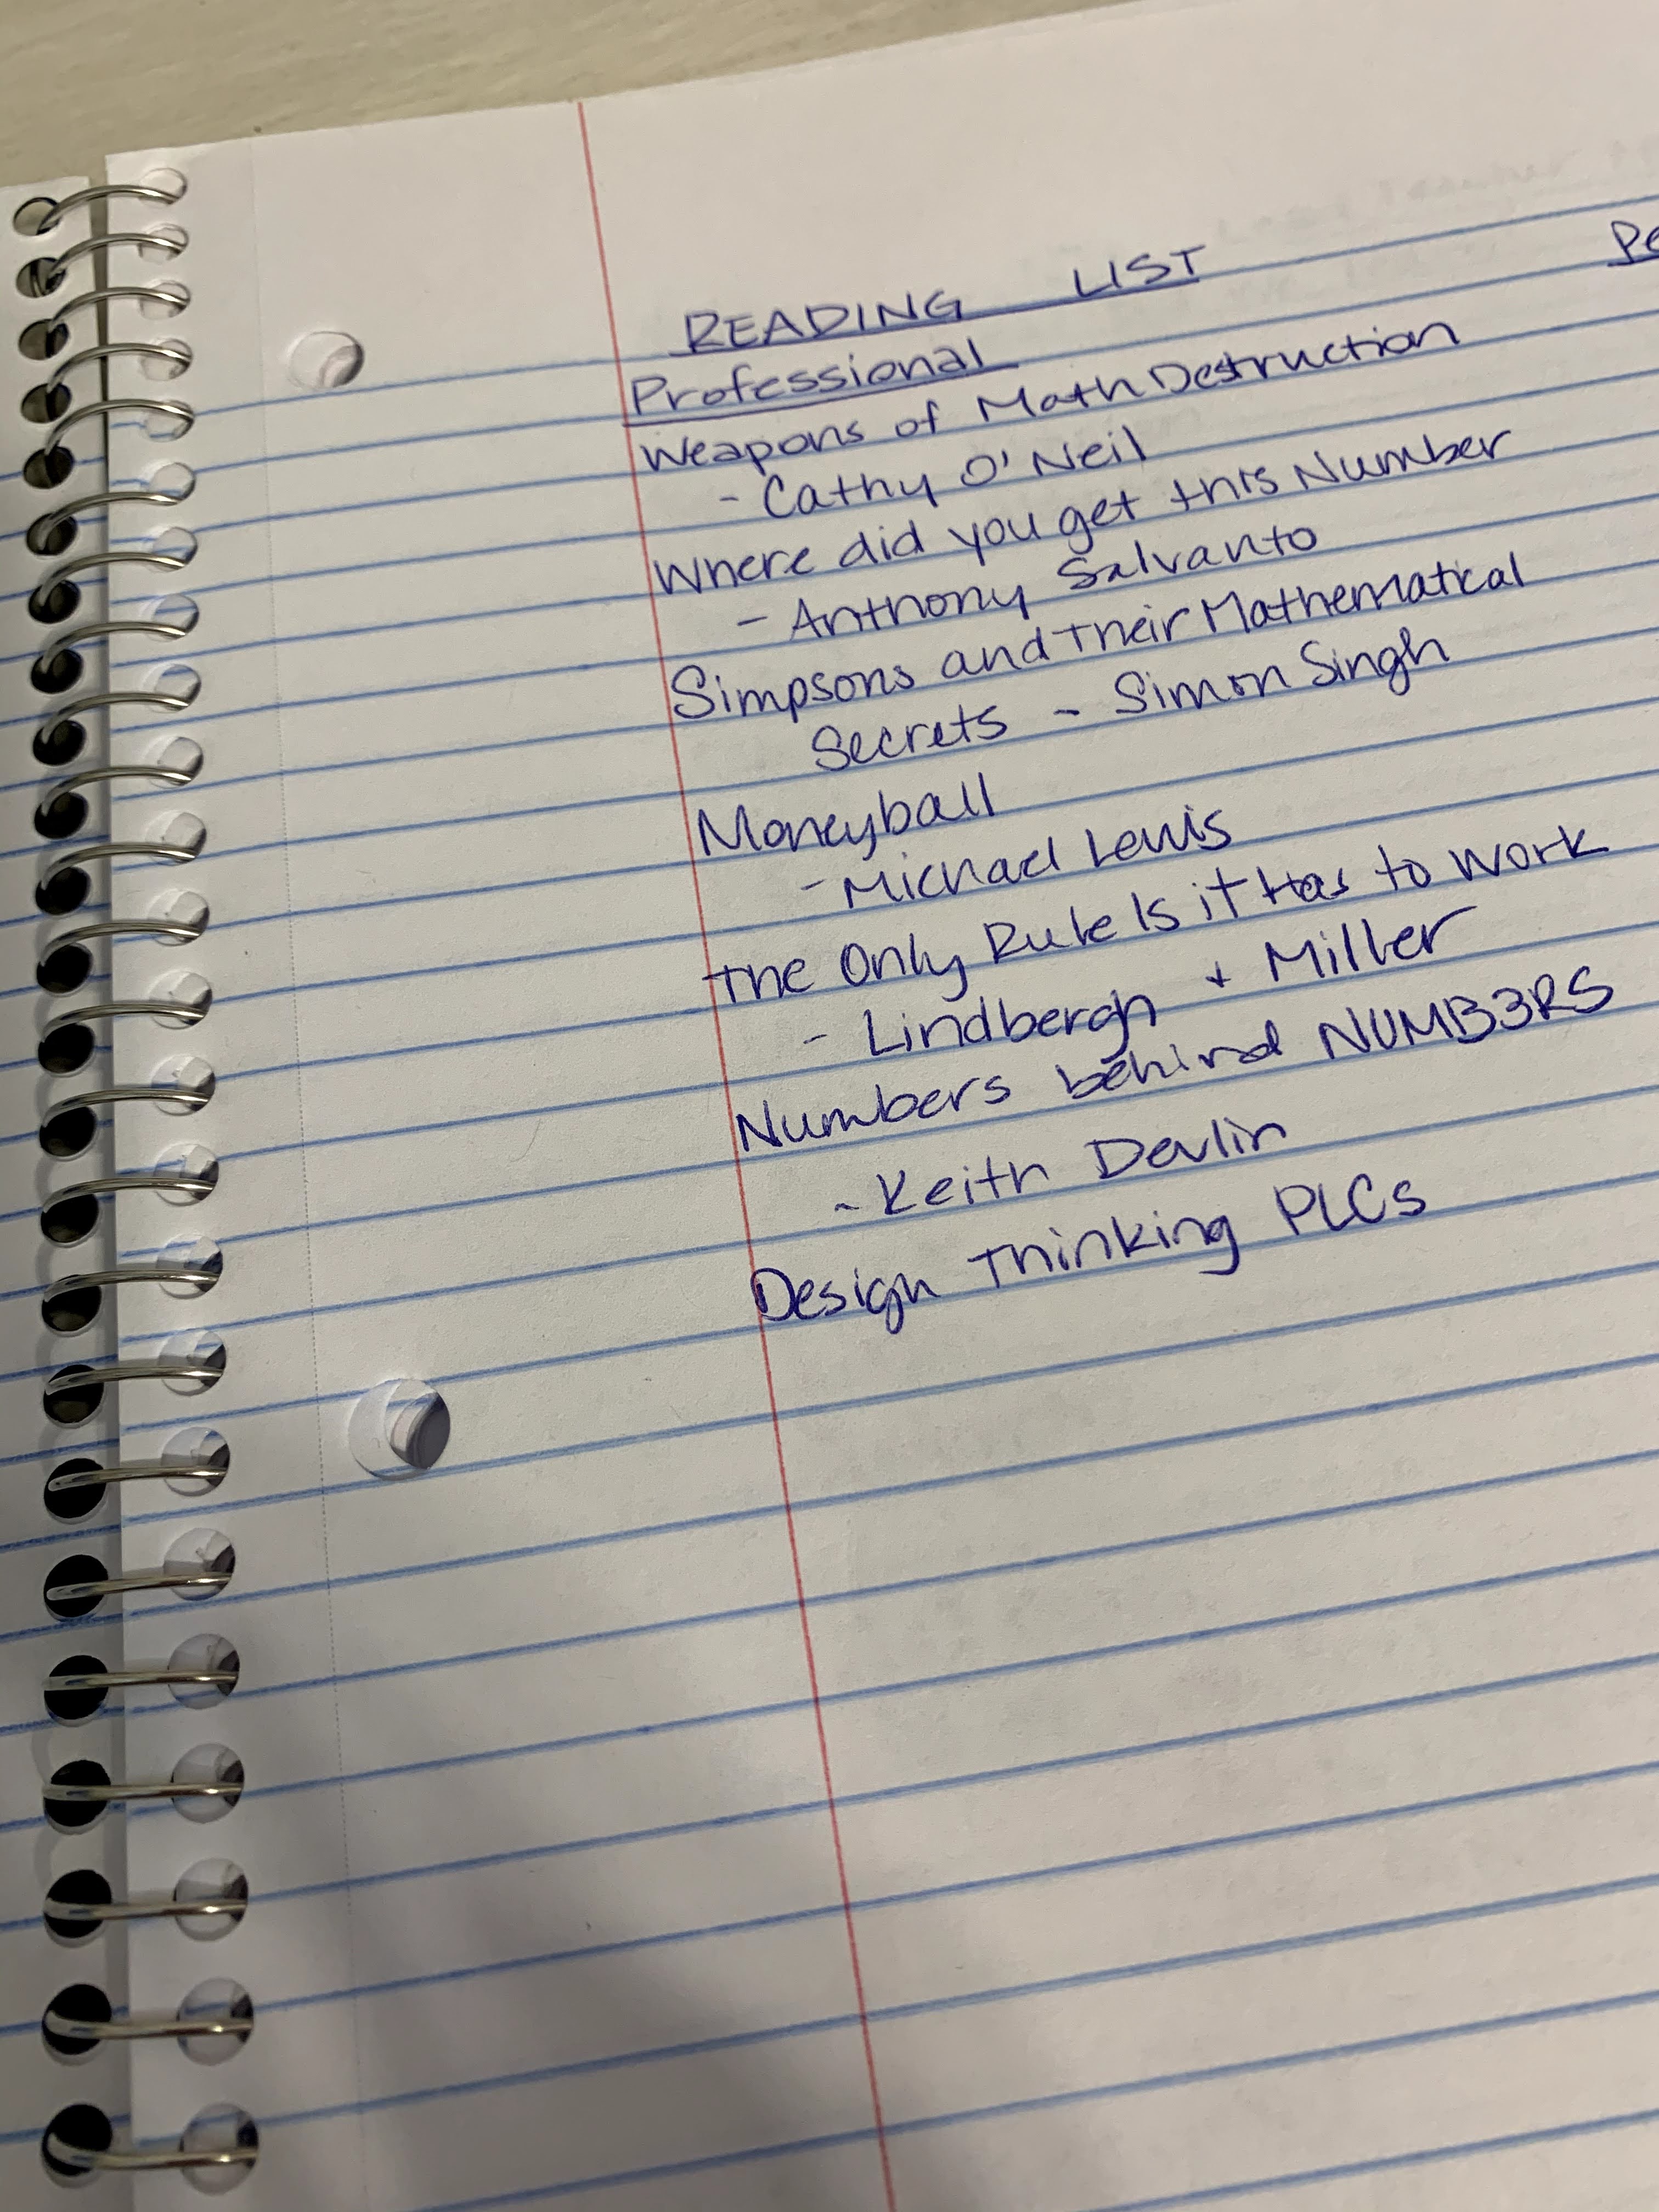 READING LIST
Pe
Professional
Weapons of Math Destruction
- Cathy O'Neil
Where did you get this Number
- Anthony Salvanto
Simpsons and Their Mathematical
Secrets - Simon Singh
Moneyball
- Michael Lewis
The Only Rule Is it Has to Work
- Lindbergh + Miller
Numbers behind NUMB3RS
- Keith Devlin
Design Thinking PLCs